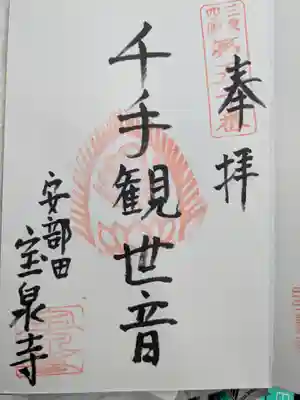 奉拝
千手観世音
安部田
宝泉寺